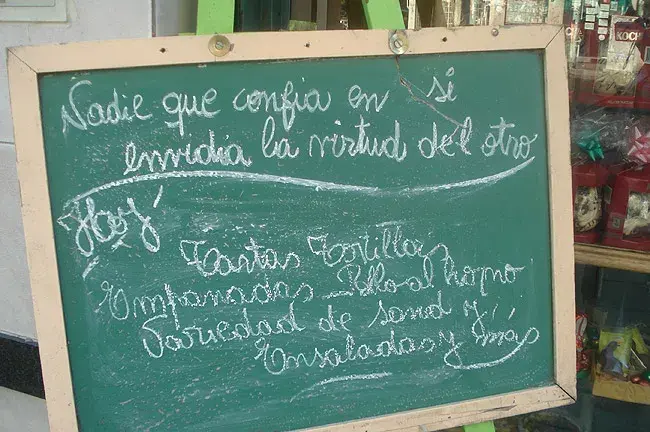 Nadie que confia en si
envidia la virtud del otro
Hoy
Tartas Tortillas
Empanadas - Pollo al horno
Variedad de sand y
Ensaladas y más
KOCH